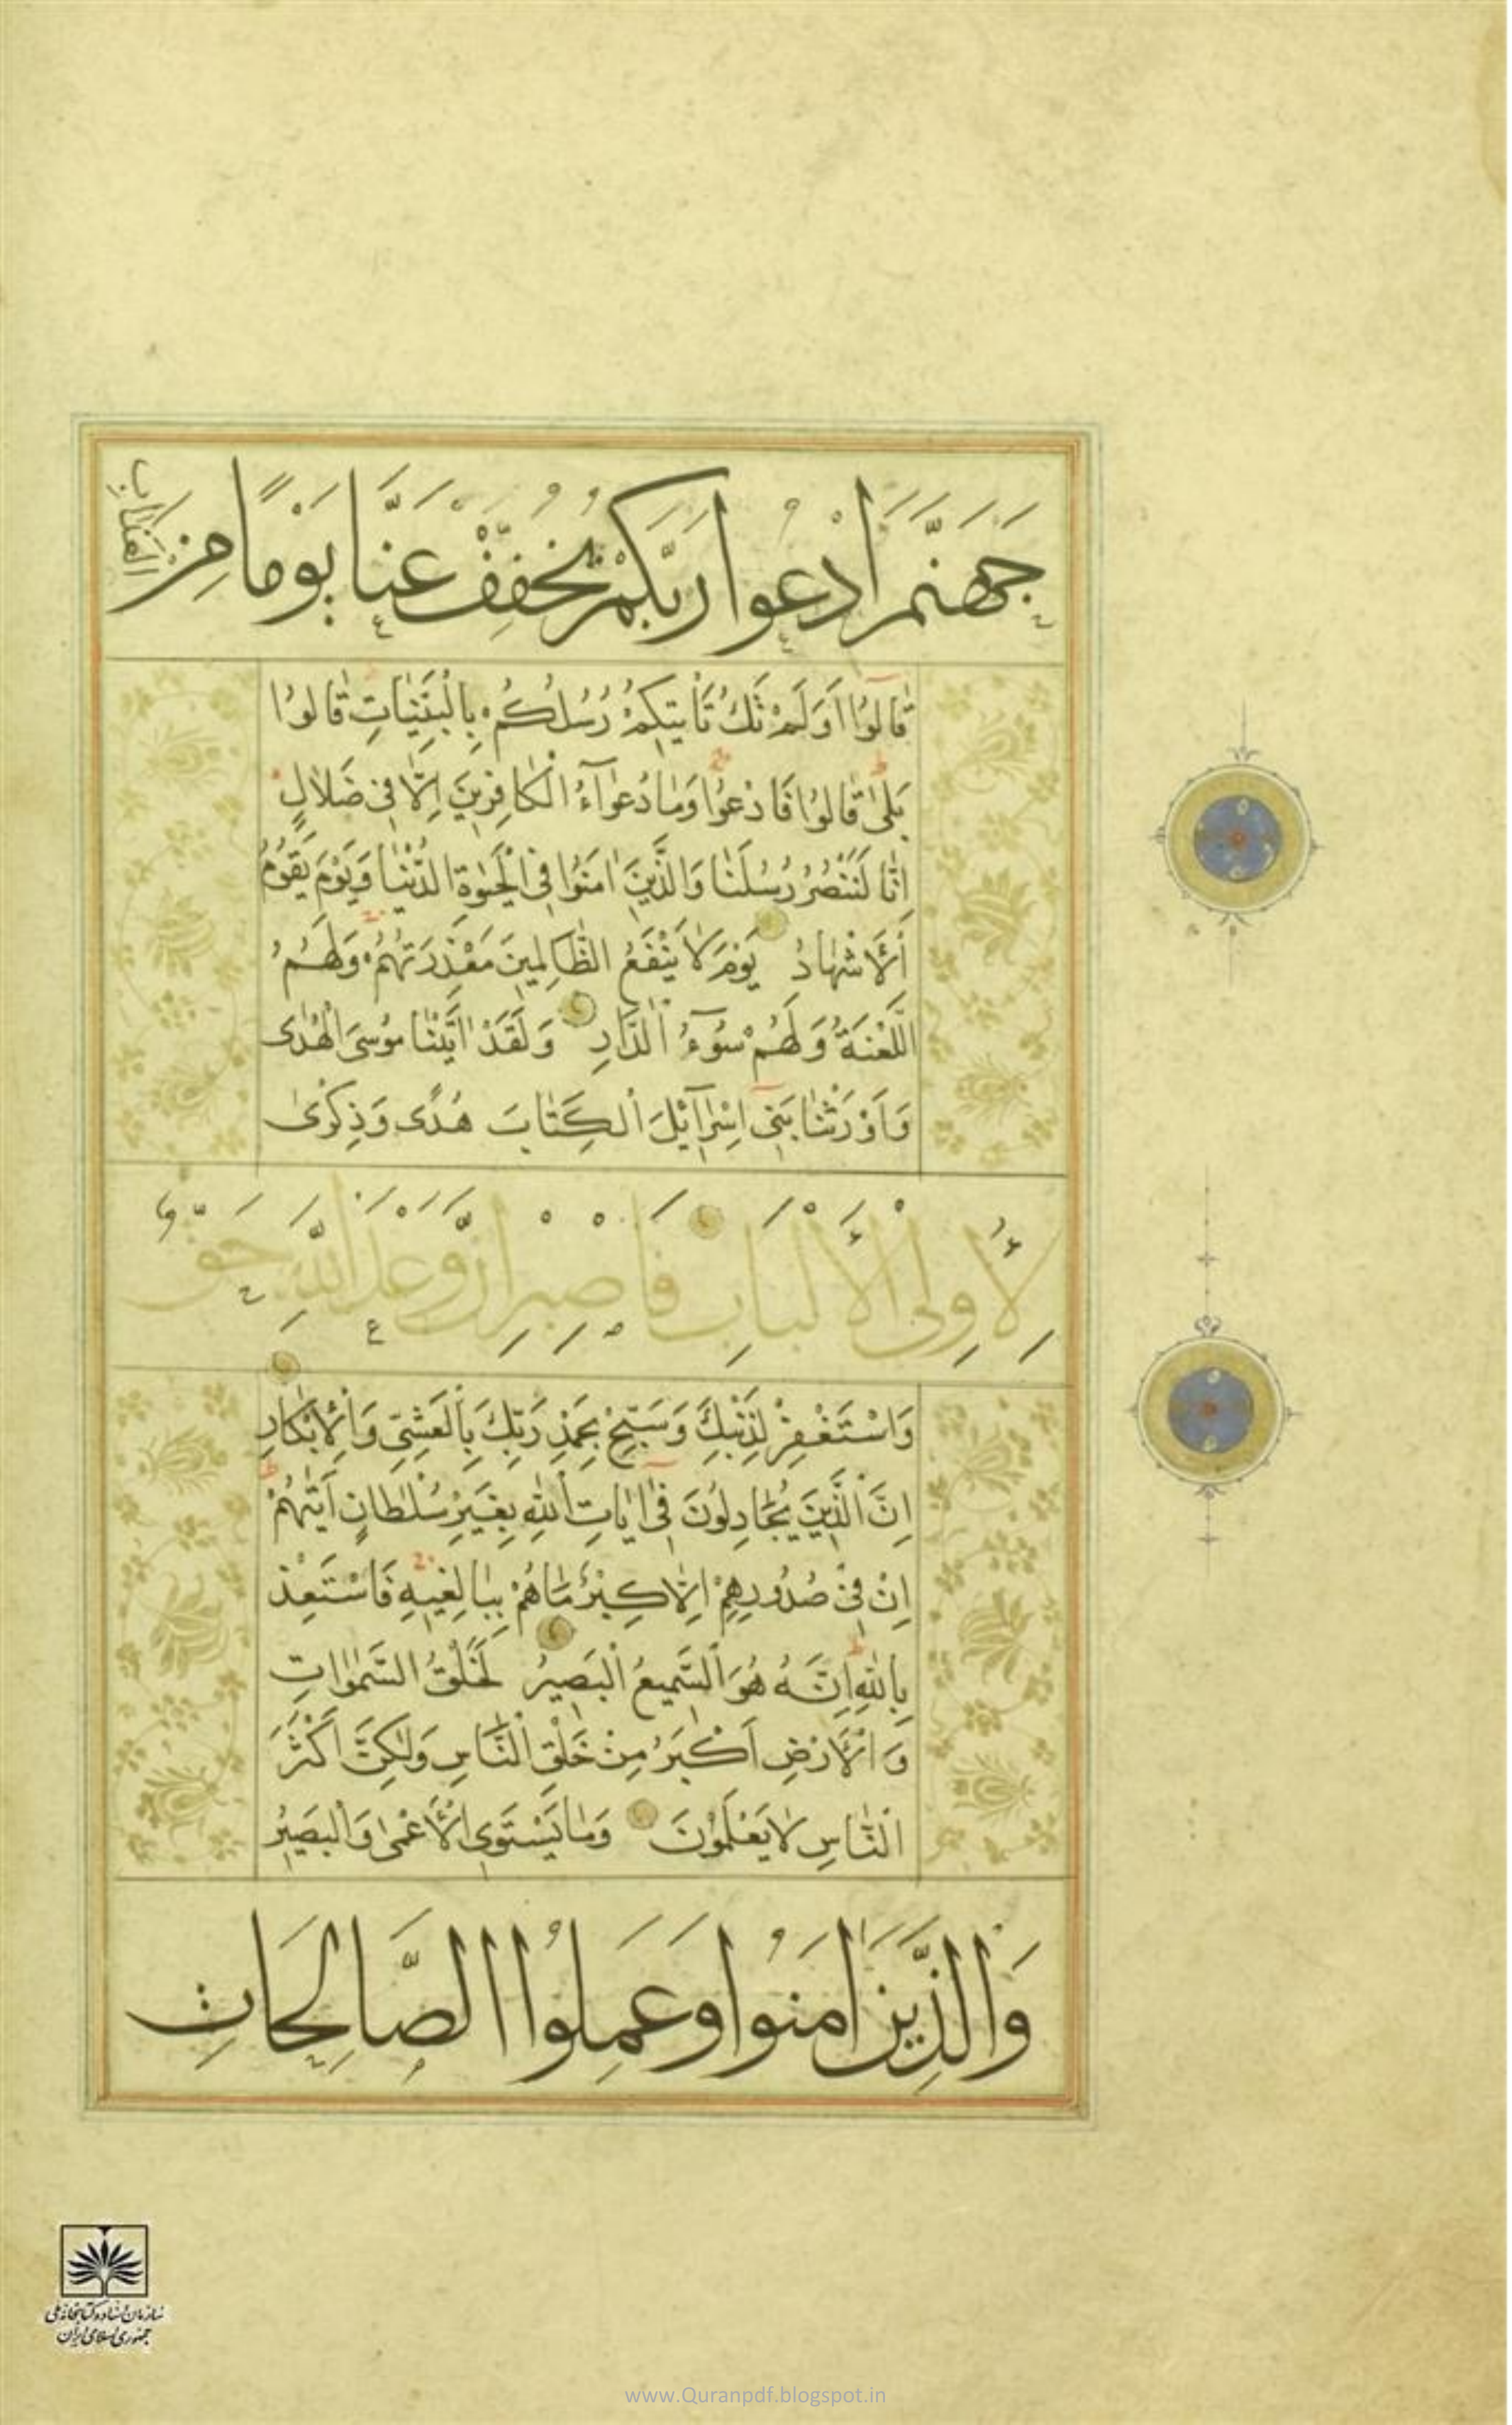 جَهَنَّمَ ادْعُوا رَبَّكُمْ يُخَفِّفْ عَنَّا يَوْمًا مِنَ الْعَذَابِ
قَالُوا اَوَلَمْ تَكُ تَأْتِيكُمْ رُسُلُكُمْ بِالْبَيِّنَاتِ قَالُوا
بَلٰى قَالُوا فَادْعُوا وَمَا دُعٰوآءُ الْكَافِرِينَ اِلَّا فِى ضَلَالٍ
اِنَّا لَنَنْصُرُ رُسُلَنَا وَالَّذِينَ اٰمَنُوا فِى الْحَيٰوةِ الدُّنْيَا وَيَوْمَ يَقُومُ
الْاَشْهَادُ يَوْمَ لَا يَنْفَعُ الظَّالِمِينَ مَعْذِرَتُهُمْ وَلَهُمُ
اللَّعْنَةُ وَلَهُمْ سُوٓءُ الدَّارِ وَلَقَدْ اٰتَيْنَا مُوسَى الْهُدٰى
وَاَوْرَثْنَا بَنِىٓ اِسْرَآئِلَ الْكِتَابَ هُدًى وَذِكْرٰى
لِاُولِى الْاَلْبَابِ فَاصْبِرْ اِنَّ وَعْدَ اللّٰهِ حَقٌّ
وَاسْتَغْفِرْ لِذَنْبِكَ وَسَبِّحْ بِحَمْدِ رَبِّكَ بِالْعَشِىِّ وَالْاِبْكَارِ
اِنَّ الَّذِينَ يُجَادِلُونَ فِىٓ اٰيَاتِ اللّٰهِ بِغَيْرِ سُلْطَانٍ اَتٰيهُمْ
اِنْ فِى صُدُورِهِمْ اِلَّا كِبْرٌ مَا هُمْ بِبَالِغِيهِ فَاسْتَعِذْ
بِاللّٰهِ اِنَّهُ هُوَ السَّمِيعُ الْبَصِيرُ لَخَلْقُ السَّمٰوَاتِ
وَالْاَرْضِ اَكْبَرُ مِنْ خَلْقِ النَّاسِ وَلٰكِنَّ اَكْثَرَ
النَّاسِ لَا يَعْلَمُونَ وَمَا يَسْتَوِى الْاَعْمٰى وَالْبَصِيرُ
وَالَّذِينَ اٰمَنُوا وَعَمِلُوا الصَّالِحَاتِ
سازمان اسناد و کتابخانه ملی
جمهوری اسلامی ایران
www.Quranpdf.blogspot.in